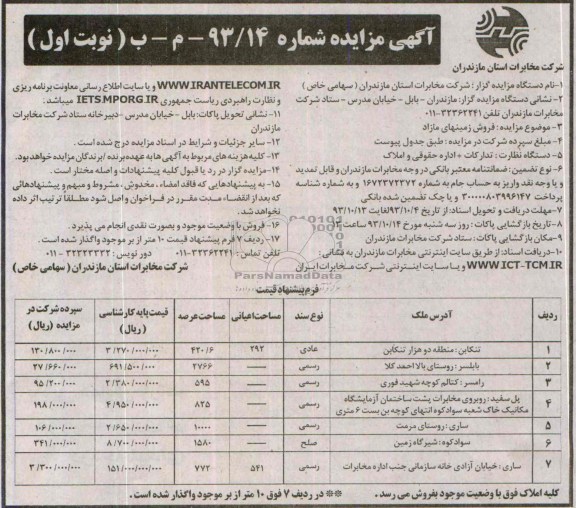 آگهی مزایده شماره ۹۳/۱۴ - م - ب ( نوبت اول )
شرکت مخابرات استان مازندران
۱-نام دستگاه مزایده گزار: شرکت مخابرات استان مازندران ( سهامی خاص )
۲- نشانی دستگاه مزایده گزار: مازندران - بابل - خیابان مدرس - ستاد شرکت
مخابرات مازندران تلفن ۳۲۳۶۲۲۴۱-۰۱۱
۳-موضوع مزایده: فروش زمینهای مازاد
۴-مبلغ سپرده شرکت در مزایده : طبق جدول پیوست
۵-دستگاه نظارت : تدارکات + اداره حقوقی و املاک
۶-نوع تضمین : ضمانتنامه معتبر بانکی در وجه مخابرات مازندران و قابل تمدید
و یا وجه نقد واریز به حساب جام به شماره ۱۶۷۲۳۷۲۳۷۲ و به شماره شناسه
پرداخت ۳۰۰۰۰۰۸۰۳۹۹۶۱۴۷ و یا چک تضمین شده بانکی
۷-مهلت دریافت و تحویل اسناد: از تاریخ ۹۳/۱۰/۴ لغایت ۹۳/۱۰/۱۳
۸-تاریخ بازگشایی پاکات : روز سه شنبه مورخ ۹۳/۱۰/۱۴ ساعت
۹-مکان بازگشایی پاکات : ستاد شرکت مخابرات مازندران
۱۰-دریافت اسناد: از طریق سایت اینترنتی مخابرات مازندران به نشانی :
WWW.ICT-TCM.IR و یا سایت اینترنتی شرکت مخابرات ایران
WWW.IRANTELECOM.IR و یا سایت اطلاع رسانی معاونت برنامه ریزی
و نظارت راهبردی ریاست جمهوری IETS.MPORG.IR میباشد:
۱۱- نشانی تحویل پاکات: بابل - خیابان مدرس - دبیرخانه ستاد شرکت مخابرات
مازندران
۱۲- سایر جزئیات و شرایط در اسناد مزایده درج شده است .
۱۳- کلیه هزینه های مربوط به آگهی ها به عهده برنده / برندگان مزایده خواهد بود.
۱۴- مزایده گزار در رد یا قبول کلیه پیشنهادات و اصله مختار است .
۱۵- به پیشنهادهایی که فاقد امضاء ، مخدوش ، مشروط و مبهم و پیشنهاداتی
که بعد از انقضاء مدت مقرر در فراخوان واصل شود مطلقاً ترتیب اثر داده
نخواهد شد.
۱۶- فروش با وضعیت موجود و بصورت نقدی انجام می پذیرد .
۱۷- ردیف ۷ فرم پیشنهاد قیمت ۱۰ متر از بر موجود واگذار شده است .
تلفن تماس : ۳۲۳۶۲۲۴۱-۰۱۱ دور نویس : ۳۲۳۳۳۳۳۲-۰۱۱
شرکت مخابرات استان مازندران ( سهامی خاص )
ParsNamadData
فرم پیشنهاد قیمت
ردیف آدرس ملک نوع سند مساحت اعیانی مساحت عرصه قیمت پایه کارشناسی (ریال) سپرده شرکت در مزایده (ریال)
۱ تنکابن: منطقه دو هزار تنکابن عادی ۲۹۲ ۴۲۰/۶ ۳/۲۷۰/۰۰۰/۰۰۰ ۱۳۰/۸۰۰/۰۰۰
۲ بابلسر : روستای بالا احمد کلا رسمی —— ۲۷۶۶ ۶۹۱/۵۰۰/۰۰۰ ۲۷/۶۶۰/۰۰۰
۳ رامسر : کتالم کوچه شهید فوری رسمی —— ۵۹۵ ۲/۳۸۰/۰۰۰/۰۰۰ ۹۵/۲۰۰/۰۰۰
۴ پل سفید : روبروی مخابرات پشت ساختمان آزمایشگاه مکانیک خاک شعبه سوادکوه انتهای کوچه بن بست ۶ متری رسمی —— ۸۲۵ ۴/۹۵۰/۰۰۰/۰۰۰ ۱۹۸/۰۰۰/۰۰۰
۵ ساری : روستای مرمت رسمی —— ۱۰۰۰۰ ۲/۶۵۰/۰۰۰/۰۰۰ ۱۰۶/۰۰۰/۰۰۰
۶ سوادکوه : شیرگاه زمین صلح —— ۱۵۸۰ ۸/۷۰۰/۰۰۰/۰۰۰ ۳۴۱/۰۰۰/۰۰۰
۷ ساری : خیابان آزادی خانه سازمانی جنب اداره مخابرات رسمی ۵۴۱ ۷۷۲ ۱۵۱/۰۰۰/۰۰۰/۰۰۰ ۳/۳۰۰/۰۰۰/۰۰۰
کلیه املاک فوق با وضعیت موجود بفروش می رسد . ** در ردیف ۷ فوق ۱۰ متر از بر موجود واگذار شده است .